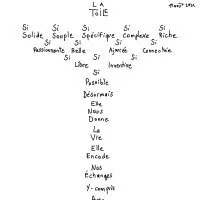 LA
TOILE
Si Si Si Si Si
Solide Souple Spécifique Complexe Riche
Si Si Si Si
Passionnante Belle Ajourée Connectée
Si Si
Libre Inventive
Si
Possible
Désormais
Elle
Nous
Donne
La
Vie
Elle
Encode
Nos
Échanges
Y-compris